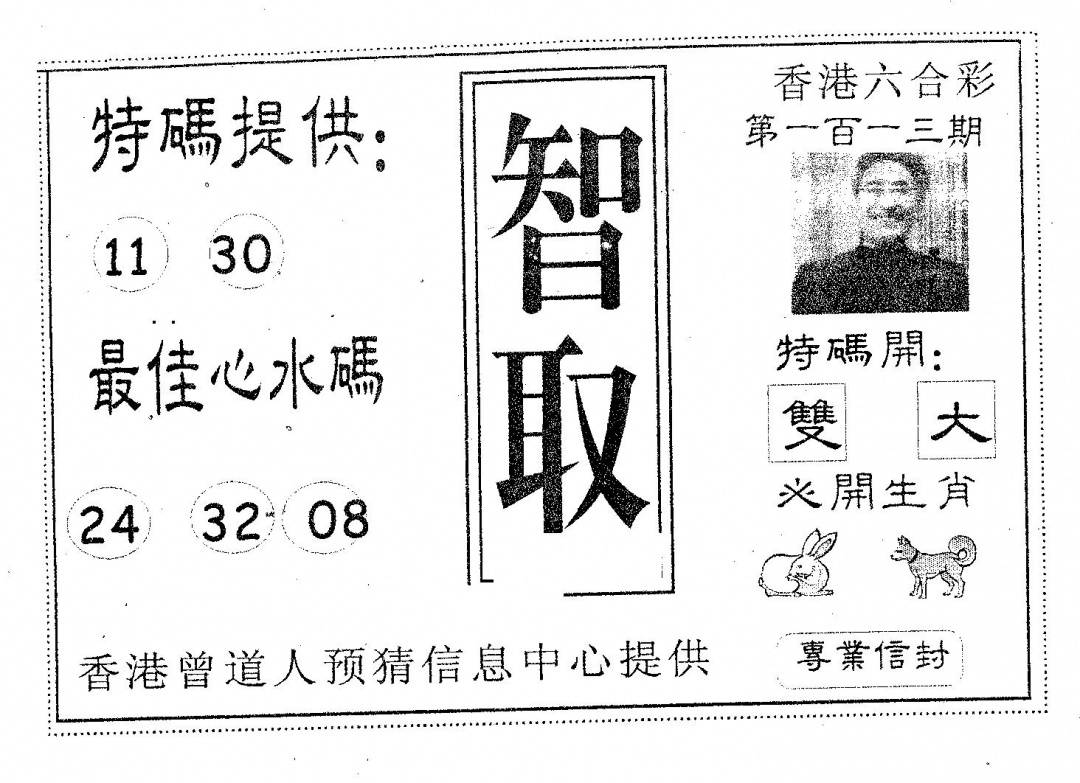 特碼提供：
11 30
最佳心水碼
24 32 08
智取
香港六合彩
第一百一十三期
特碼開：
雙 大
必開生肖
專業信封
香港曾道人预猜信息中心提供